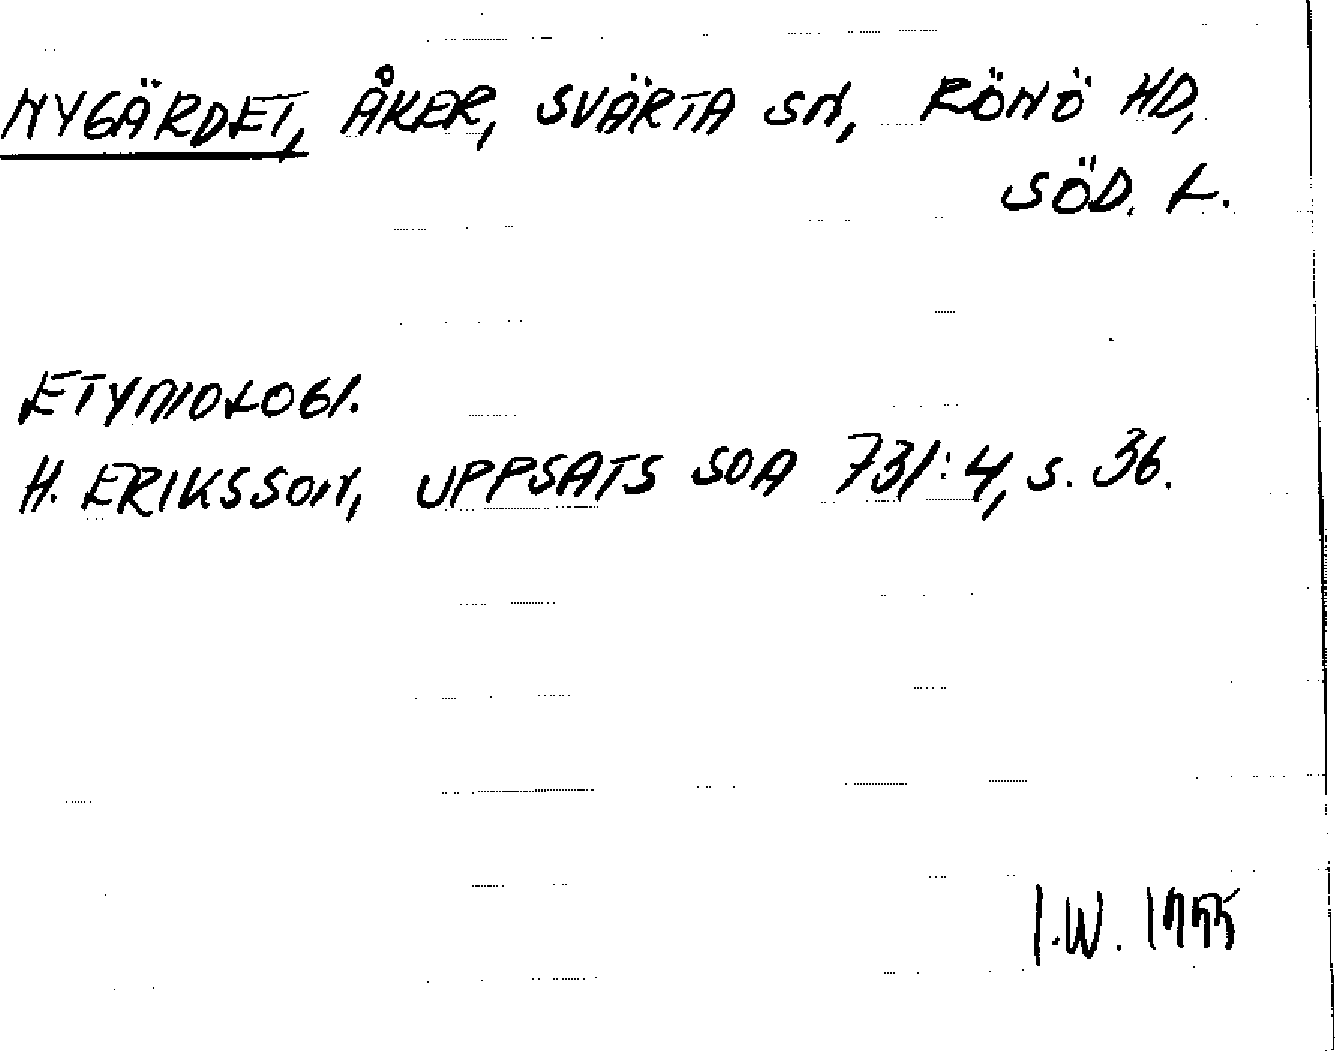 NYGÄRDET, ÅKER, SVÄRTA SN, RÖNÖ HD,
SÖD. L.
ETYMOLOGI.
H. ERIKSSON, UPPSATS SOA 731:4, S. 36.
I.W.